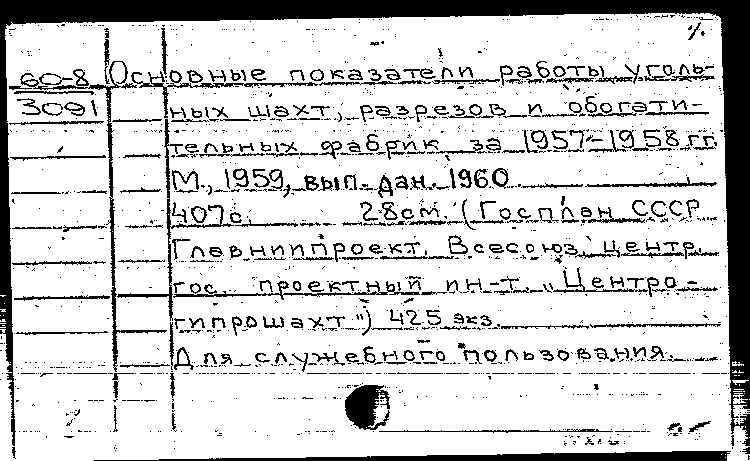 60-8 Основные показатели работы уголь-
3091 ных шахт, разрезов и обогати-
тельных фабрик за 1957-1958 гг.
М., 1959, вып. дан. 1960
407 с. 28 см. (Госплан СССР
Главниипроект. Всесоюз. центр.
гос. проектный ин-т. „Центро-
гипрошахт") 425 экз.
Для служебного пользования.